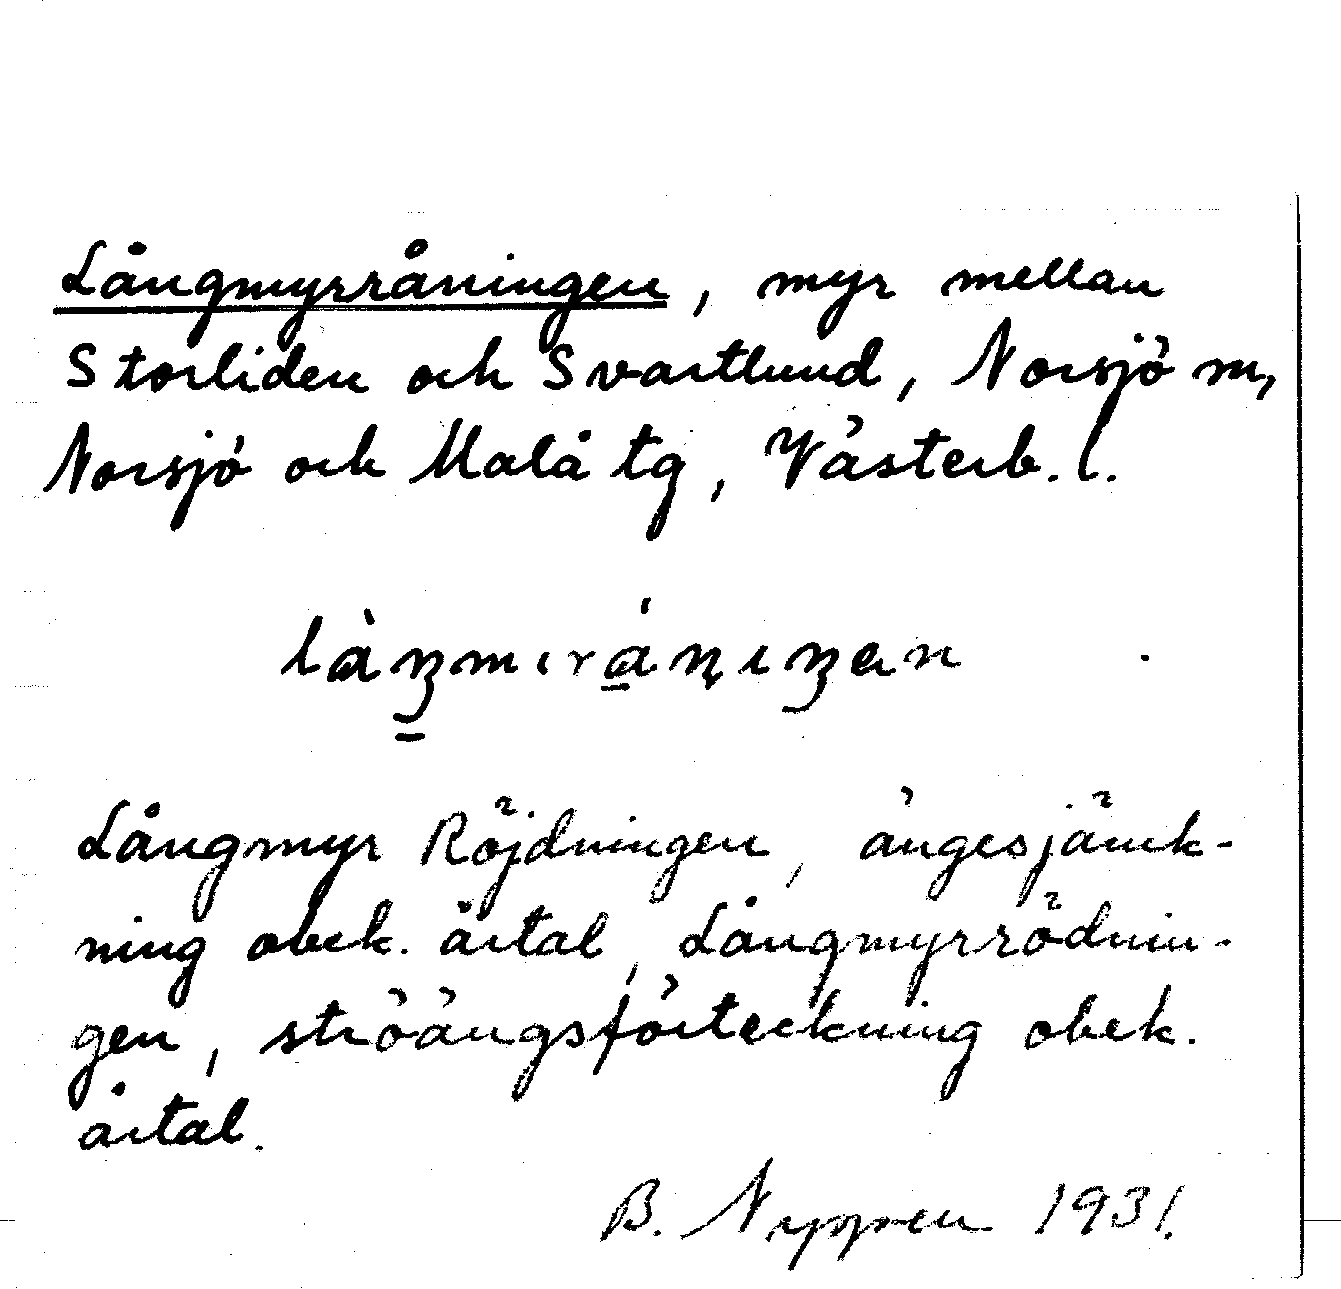 Långmyrråningen, myr mellan
Storliden och Svartlund, Norsjö sn,
Norsjö och Malå tg, Västerb. l.
Långmyr Röjdningen, ängesjämk-
ning obek. årtal, Långmyrrödnin-
gen, ströängsförteckning obek.
årtal.
B. 1931.